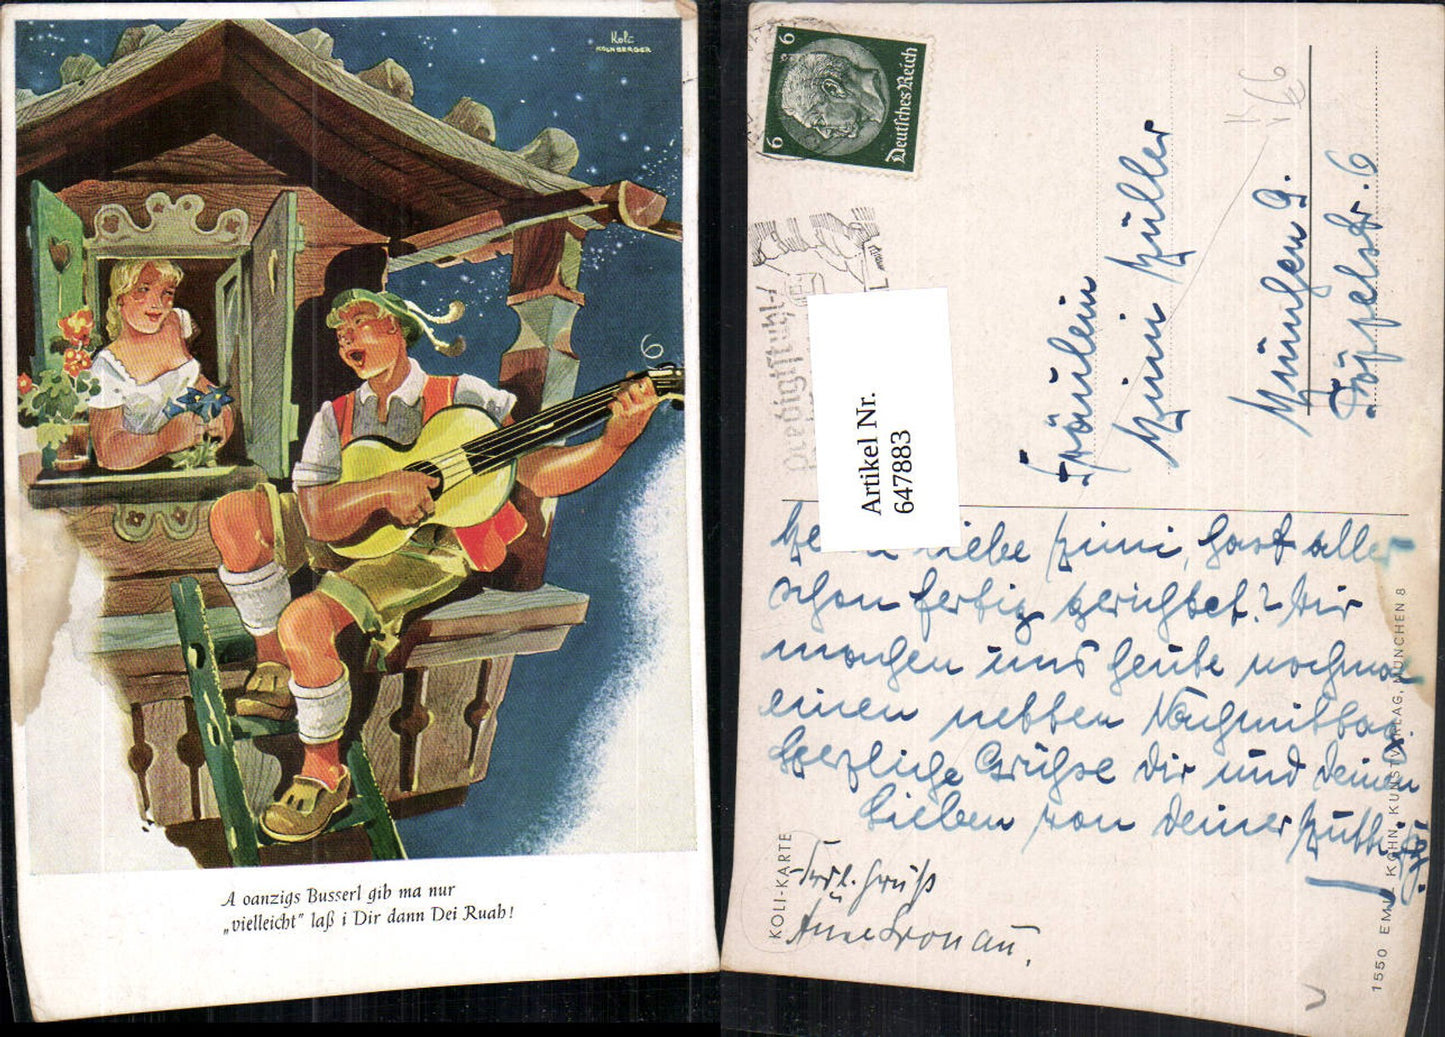 Koli
KOLNBERGER
6
A oanzigs Busserl gib ma nur
„vielleicht” laß i Dir dann Dei Ruah!
6 6
Deutsches Reich
Fräulein
Mimi Müller
München 9.
Artikel Nr.
647883
liebe Mimi, hast alles
schon fertig gerichtet? Wir
machen uns heute nochmal
einen netten Nachmittag.
Herzliche Grüße Dir und Deinen
Lieben von Deiner Mutti
KOLI-KARTE
1550 EMIL KÖHN, KUNSTVERLAG, MÜNCHEN 8